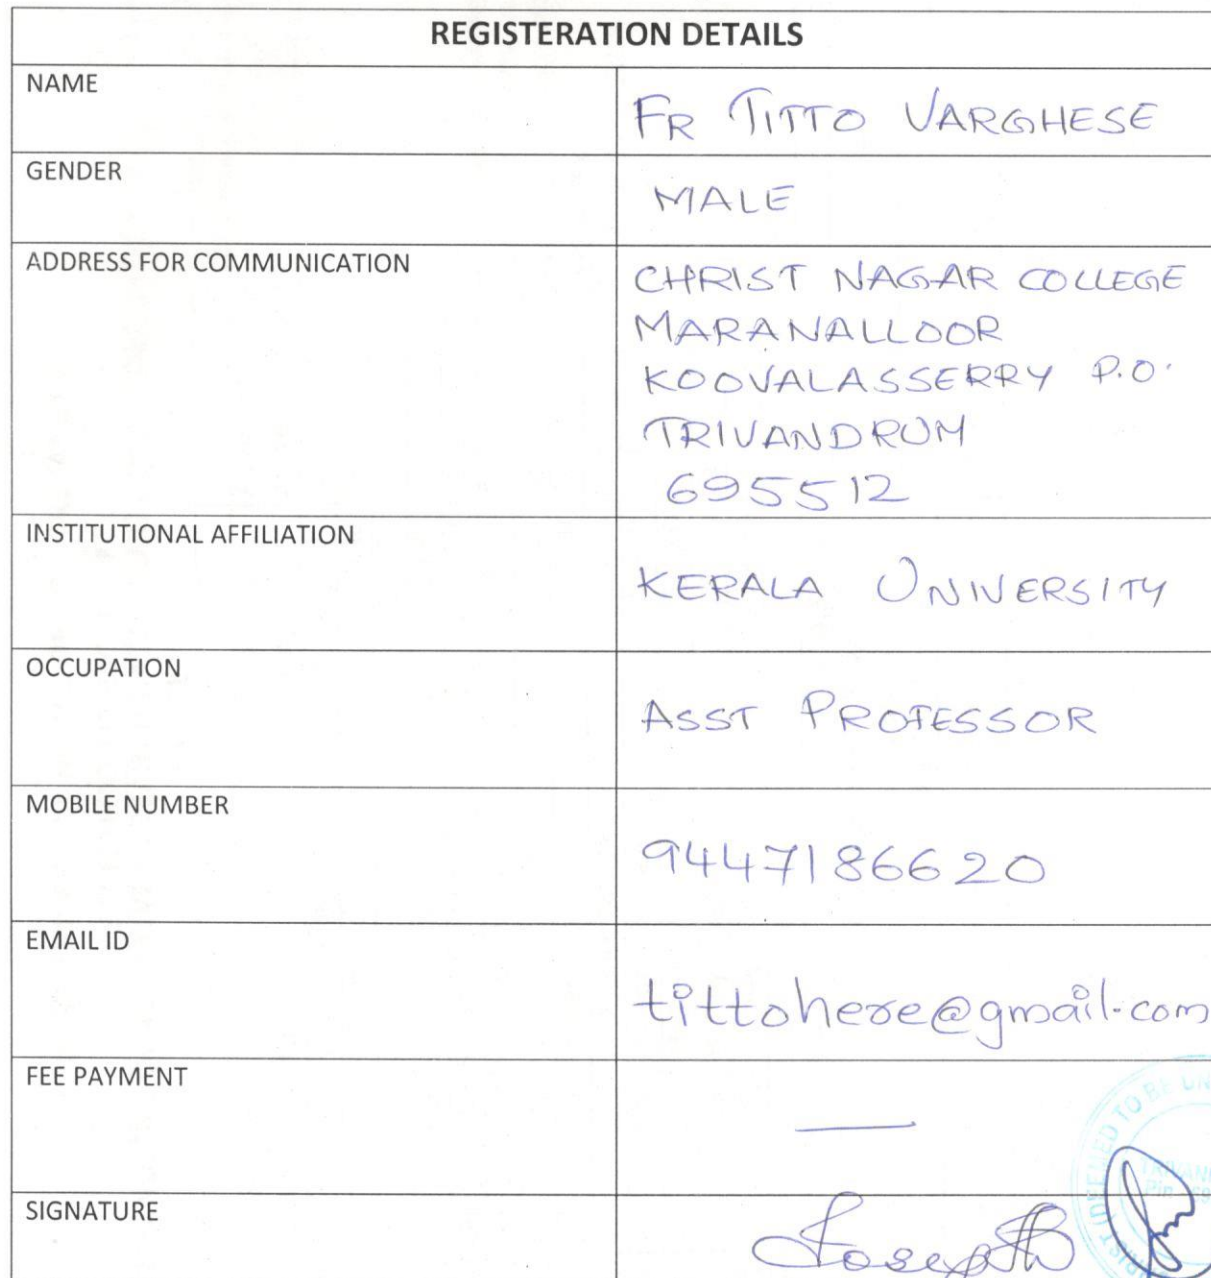 REGISTERATION DETAILS
NAME
FR TITTO VARGHESE
GENDER
MALE
ADDRESS FOR COMMUNICATION
CHRIST NAGAR COLLEGE
MARANALLOOR
KOOVALASSERRY P.O.
TRIVANDRUM
695512
INSTITUTIONAL AFFILIATION
KERALA UNIVERSITY
OCCUPATION
ASST PROFESSOR
MOBILE NUMBER
9447186620
EMAIL ID
tittohere@gmail.com
FEE PAYMENT
—
SIGNATURE
TO BE